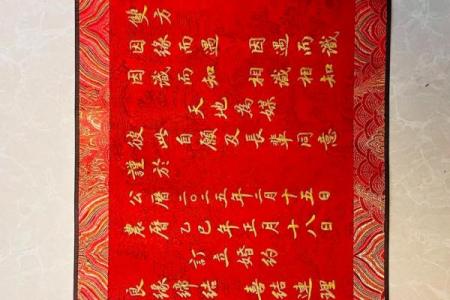 方
因緣而遇 因遇而識
因識而知 相識相知
天地為媒
彼此自願及長輩同意
謹於
公曆 二〇二五年二月十五日
農曆 乙巳年正月十八日
訂立婚約
良緣締結 喜結連理